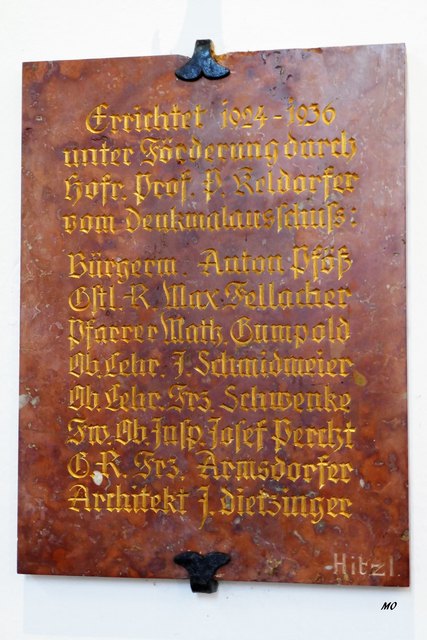 Errichtet 1924-1936
unter Förderung durch
Hofr. Prof. P. Keldorfer
vom Denkmalausschuß:
Bürgerm. Anton Pföß
Gstl. R. Max Fellacher
Pfarrer Math. Gumpold
Ob. Lehr. J. Schmidmeier
Ob. Lehr. Frz. Schwenke
Fw. Ob. Insp. Josef Percht
G. R. Frz. Armsdorfer
Architekt J. Dietzinger
Hitzl
MO